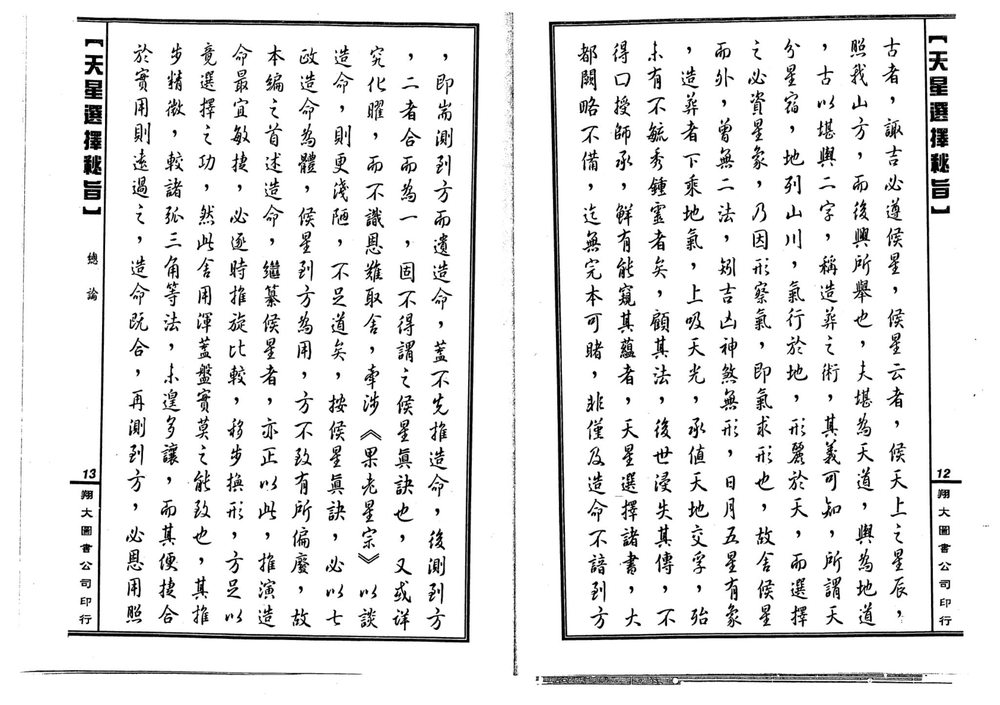 【天星選擇秘旨】
12
翔大圖書公司印行
古者，諏吉必遵候星，候星云者，候天上之星辰，
照我山方，而後興所舉也，夫堪為天道，輿為地道
，古以堪輿二字，稱造葬之術，其義可知，所謂天
分星宿，地列山川，氣行於地，形麗於天，而選擇
之必資星象，乃因形察氣，即氣求形也，故舍候星
而外，曾無二法，矧吉凶神煞無形，日月五星有象
，造葬者下乘地氣，上吸天光，承值天地交孚，殆
未有不毓秀鍾靈者矣，顧其法，後世浸失其傳，不
得口授師承，鮮有能窺其蘊者，天星選擇諸書，大
都闕略不備，迄無完本可睹，非僅及造命不諳到方
，即耑測到方而遺造命，蓋不先推造命，後測到方
，二者合而為一，固不得謂之候星真訣也，又或詳
究化曜，而不識恩難取舍，牽涉《果老星宗》以談
造命，則更淺陋，不足道矣，按候星真訣，必以七
政造命為體，候星到方為用，方不致有所偏廢，故
本編之首述造命，繼纂候星者，亦正以此，推演造
命最宜敏捷，必逐時推旋比較，移步換形，方足以
竟選擇之功，然此舍用渾蓋盤實莫之能致也，其推
步精微，較諸弧三角等法，未遑多讓，而其便捷合
於實用則遠過之，造命既合，再測到方，必恩用照
【天星選擇秘旨】
總論
13
翔大圖書公司印行